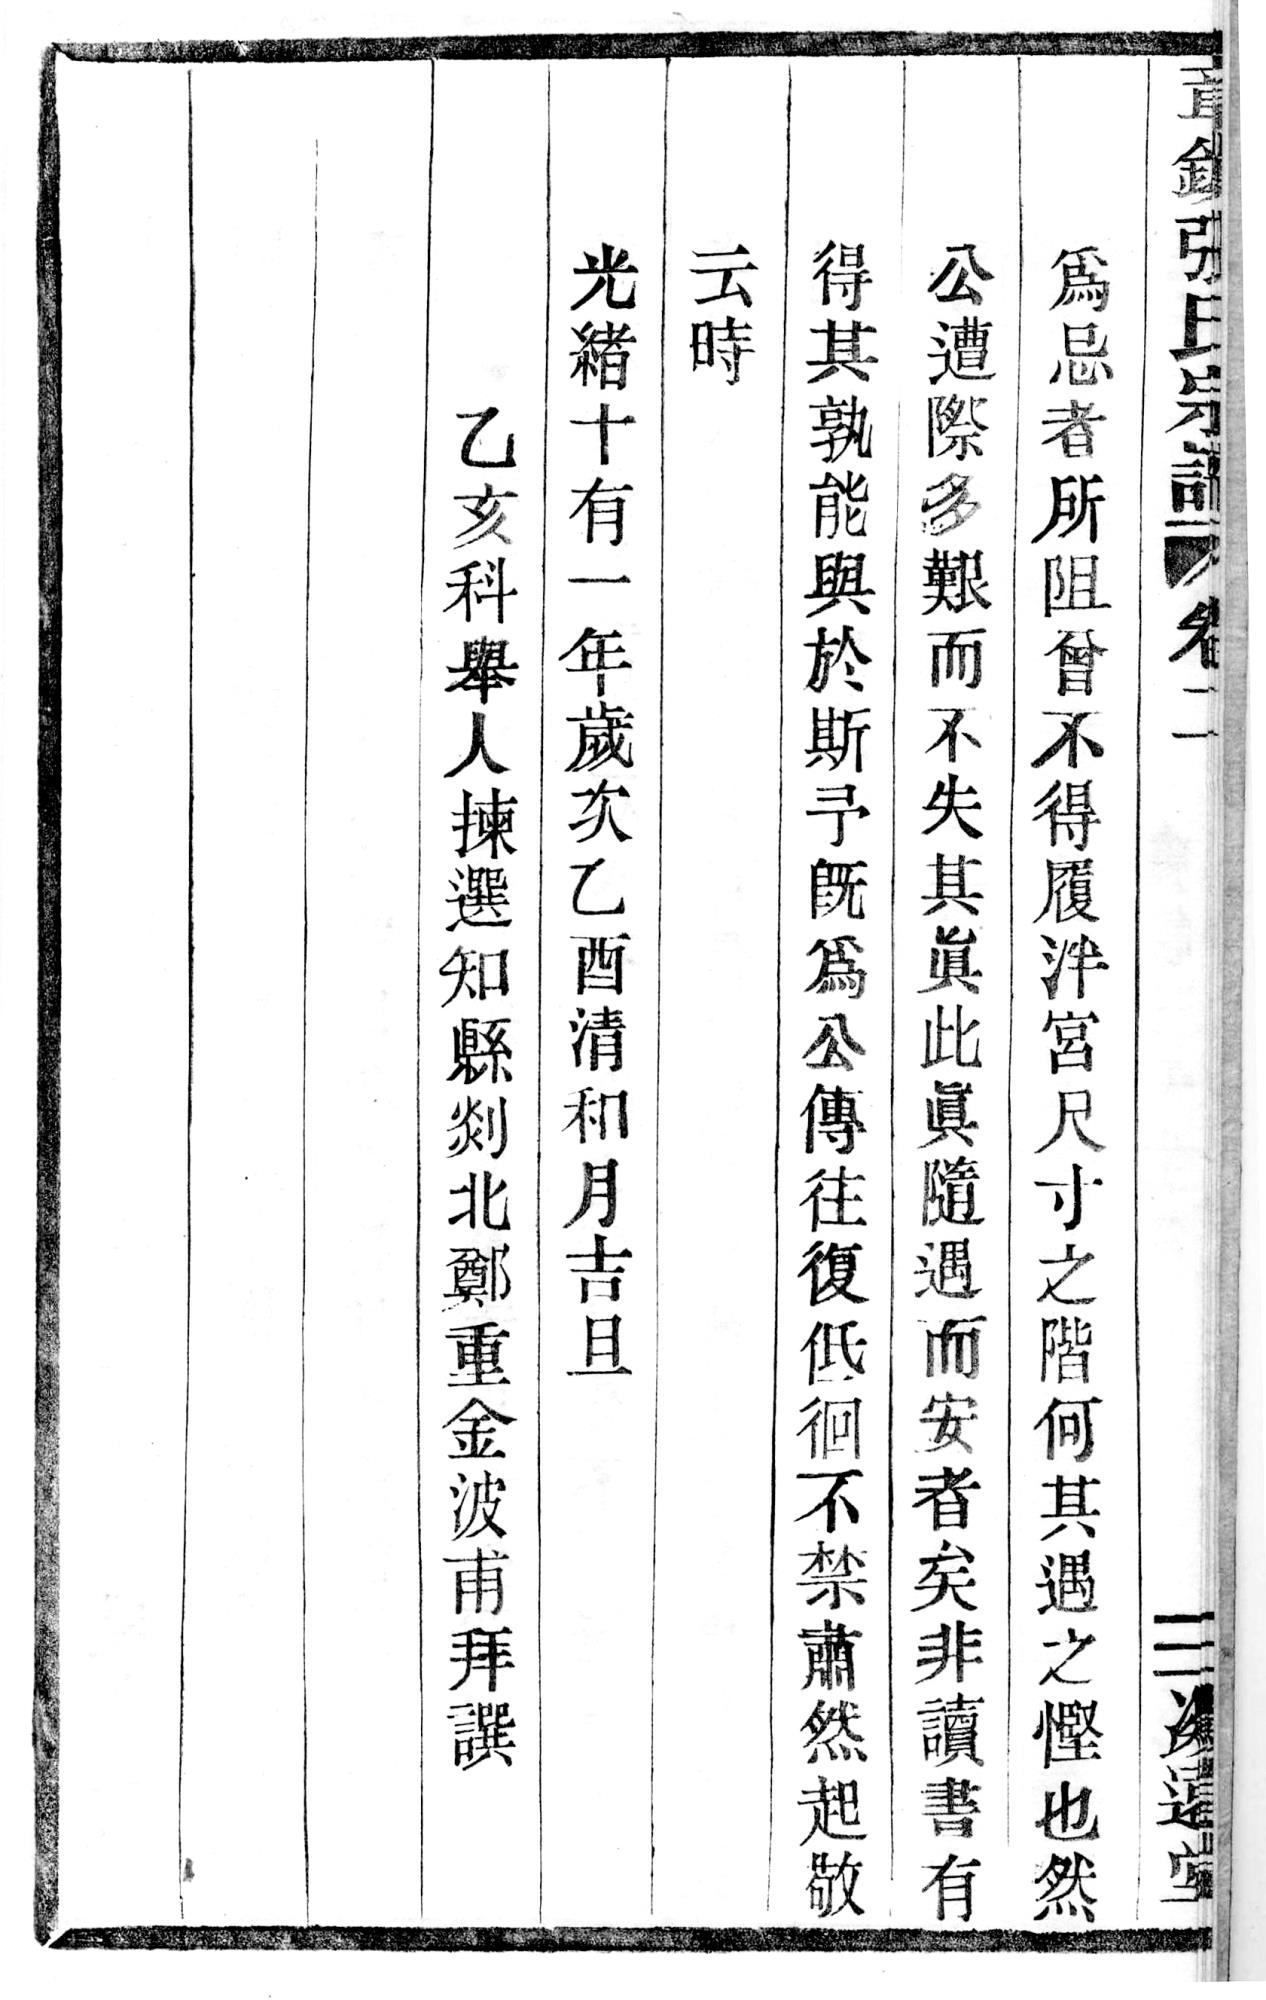 張氏宗譜 卷二 三
爲忌者所阻曾不得履泮宮尺寸之階何其遇之慳也然
公遭際多艱而不失其眞此眞隨遇而安者矣非讀書有
得其孰能與於斯予旣爲公傳往復低徊不禁肅然起敬
云時
光緒十有一年歲次乙酉清和月吉旦
乙亥科舉人揀選知縣剡北鄭重金波甫拜譔